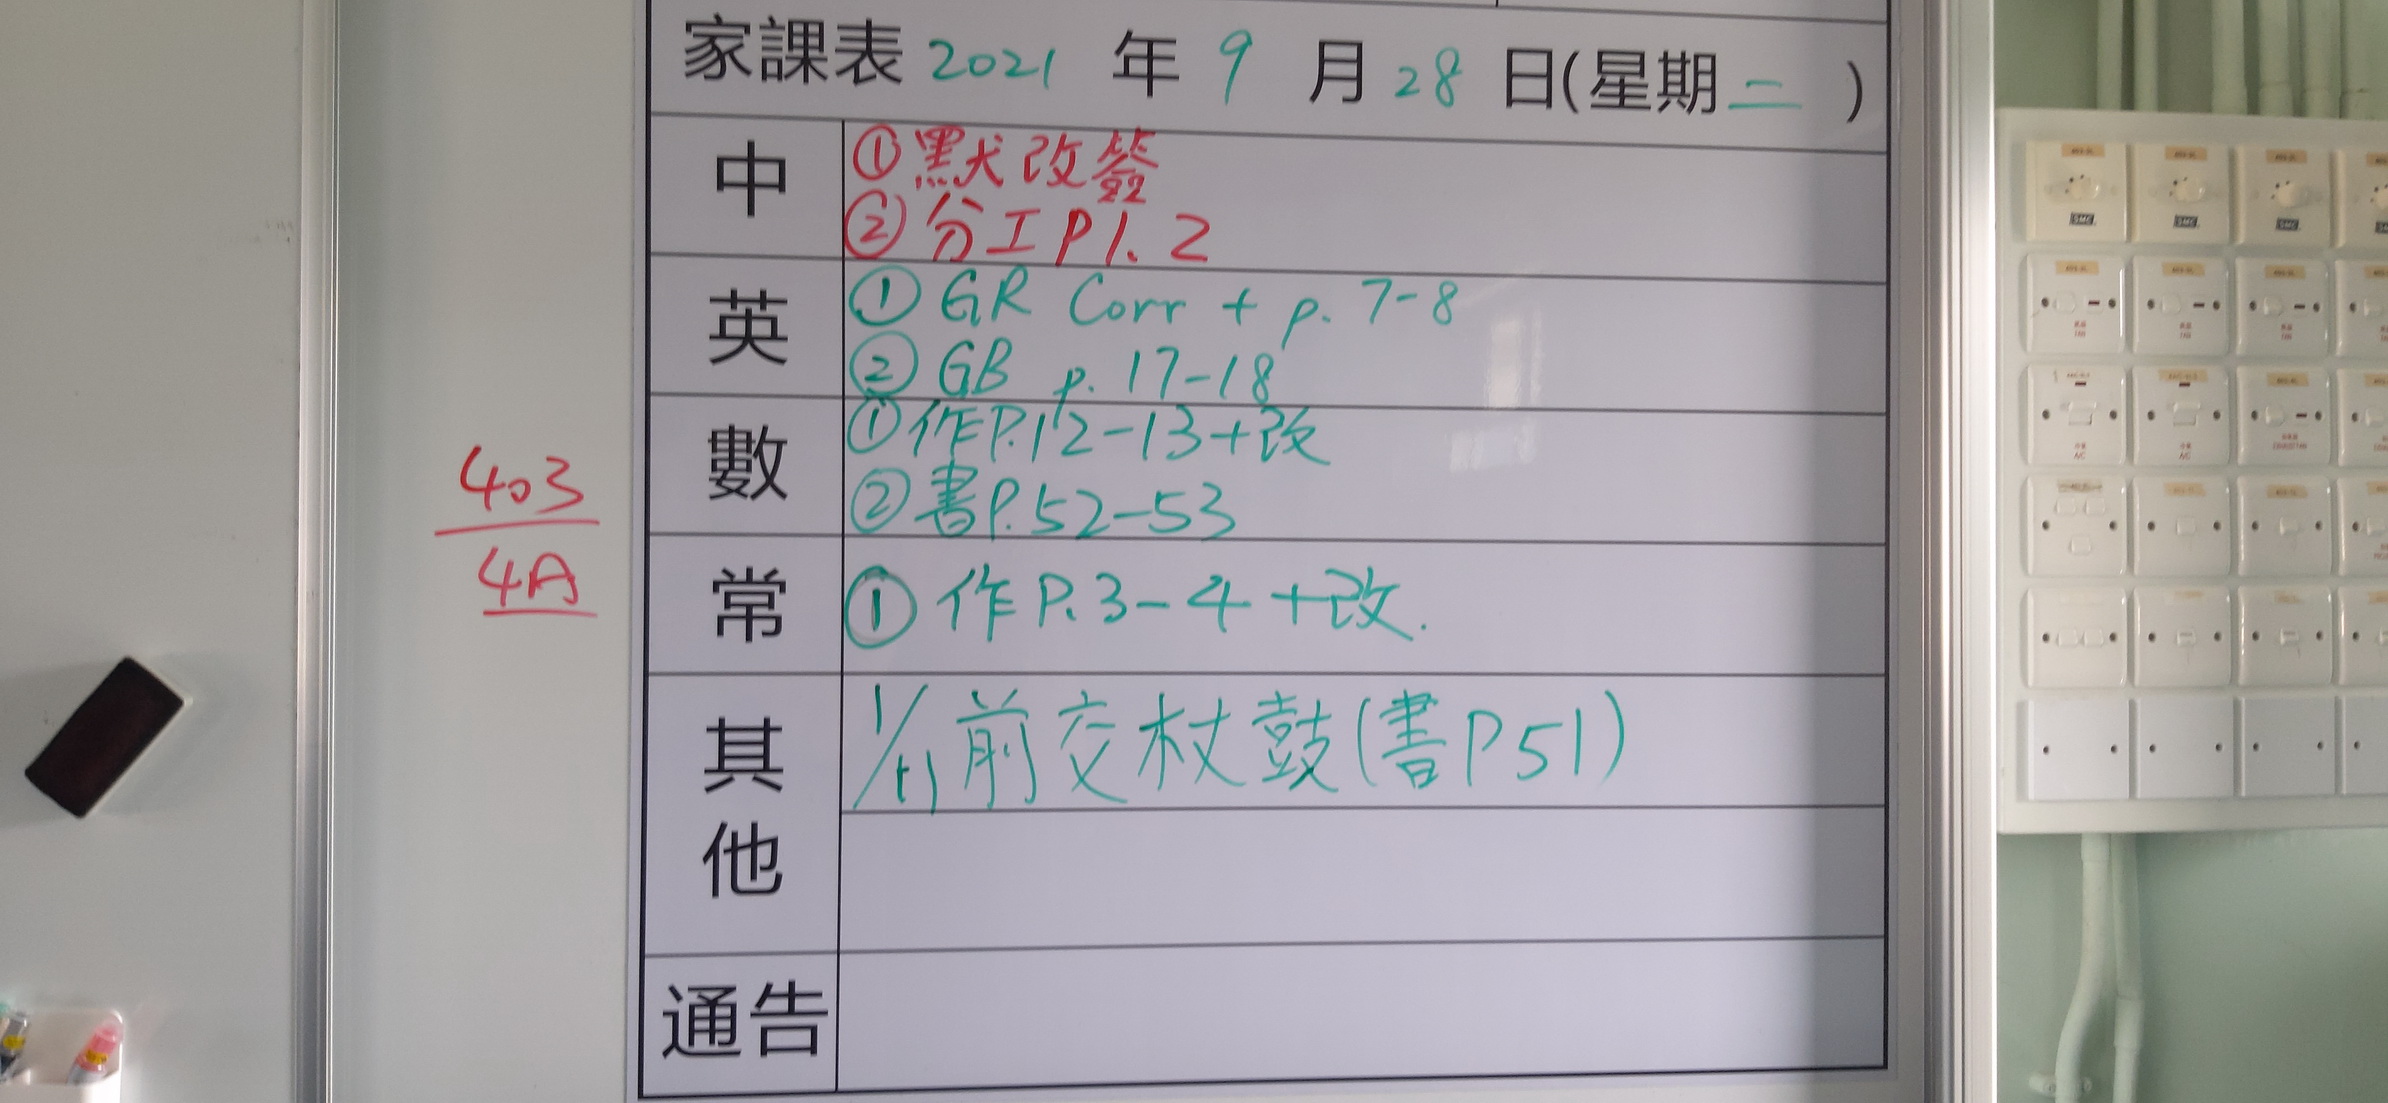 家課表 2021 年 9 月 28 日(星期二)
中
①默改簽
②分工P1.2
英
① GR Corr + p. 7-8
② GB p. 17-18
數
①作P.12-13+改
②書P.52-53
常
① 作P.3-4+改.
其他
1/11前交杖鼓(書P51)
通告
403
4A